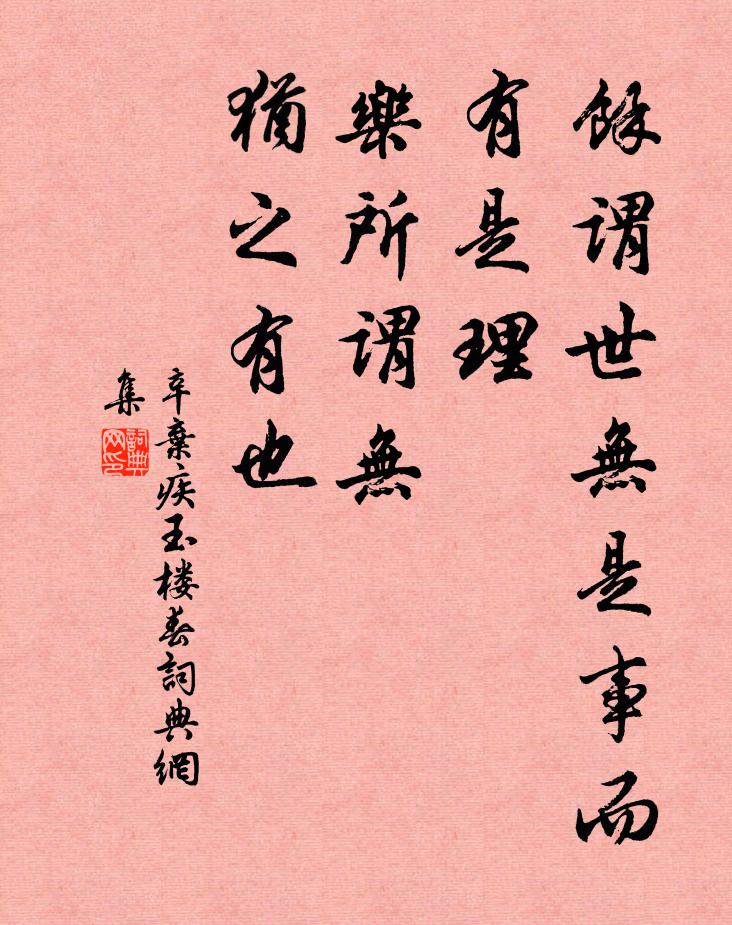 餘謂世無是事而
有是理
樂所謂無
猶之有也
辛棄疾玉楼春詞典網
集
詞典网印